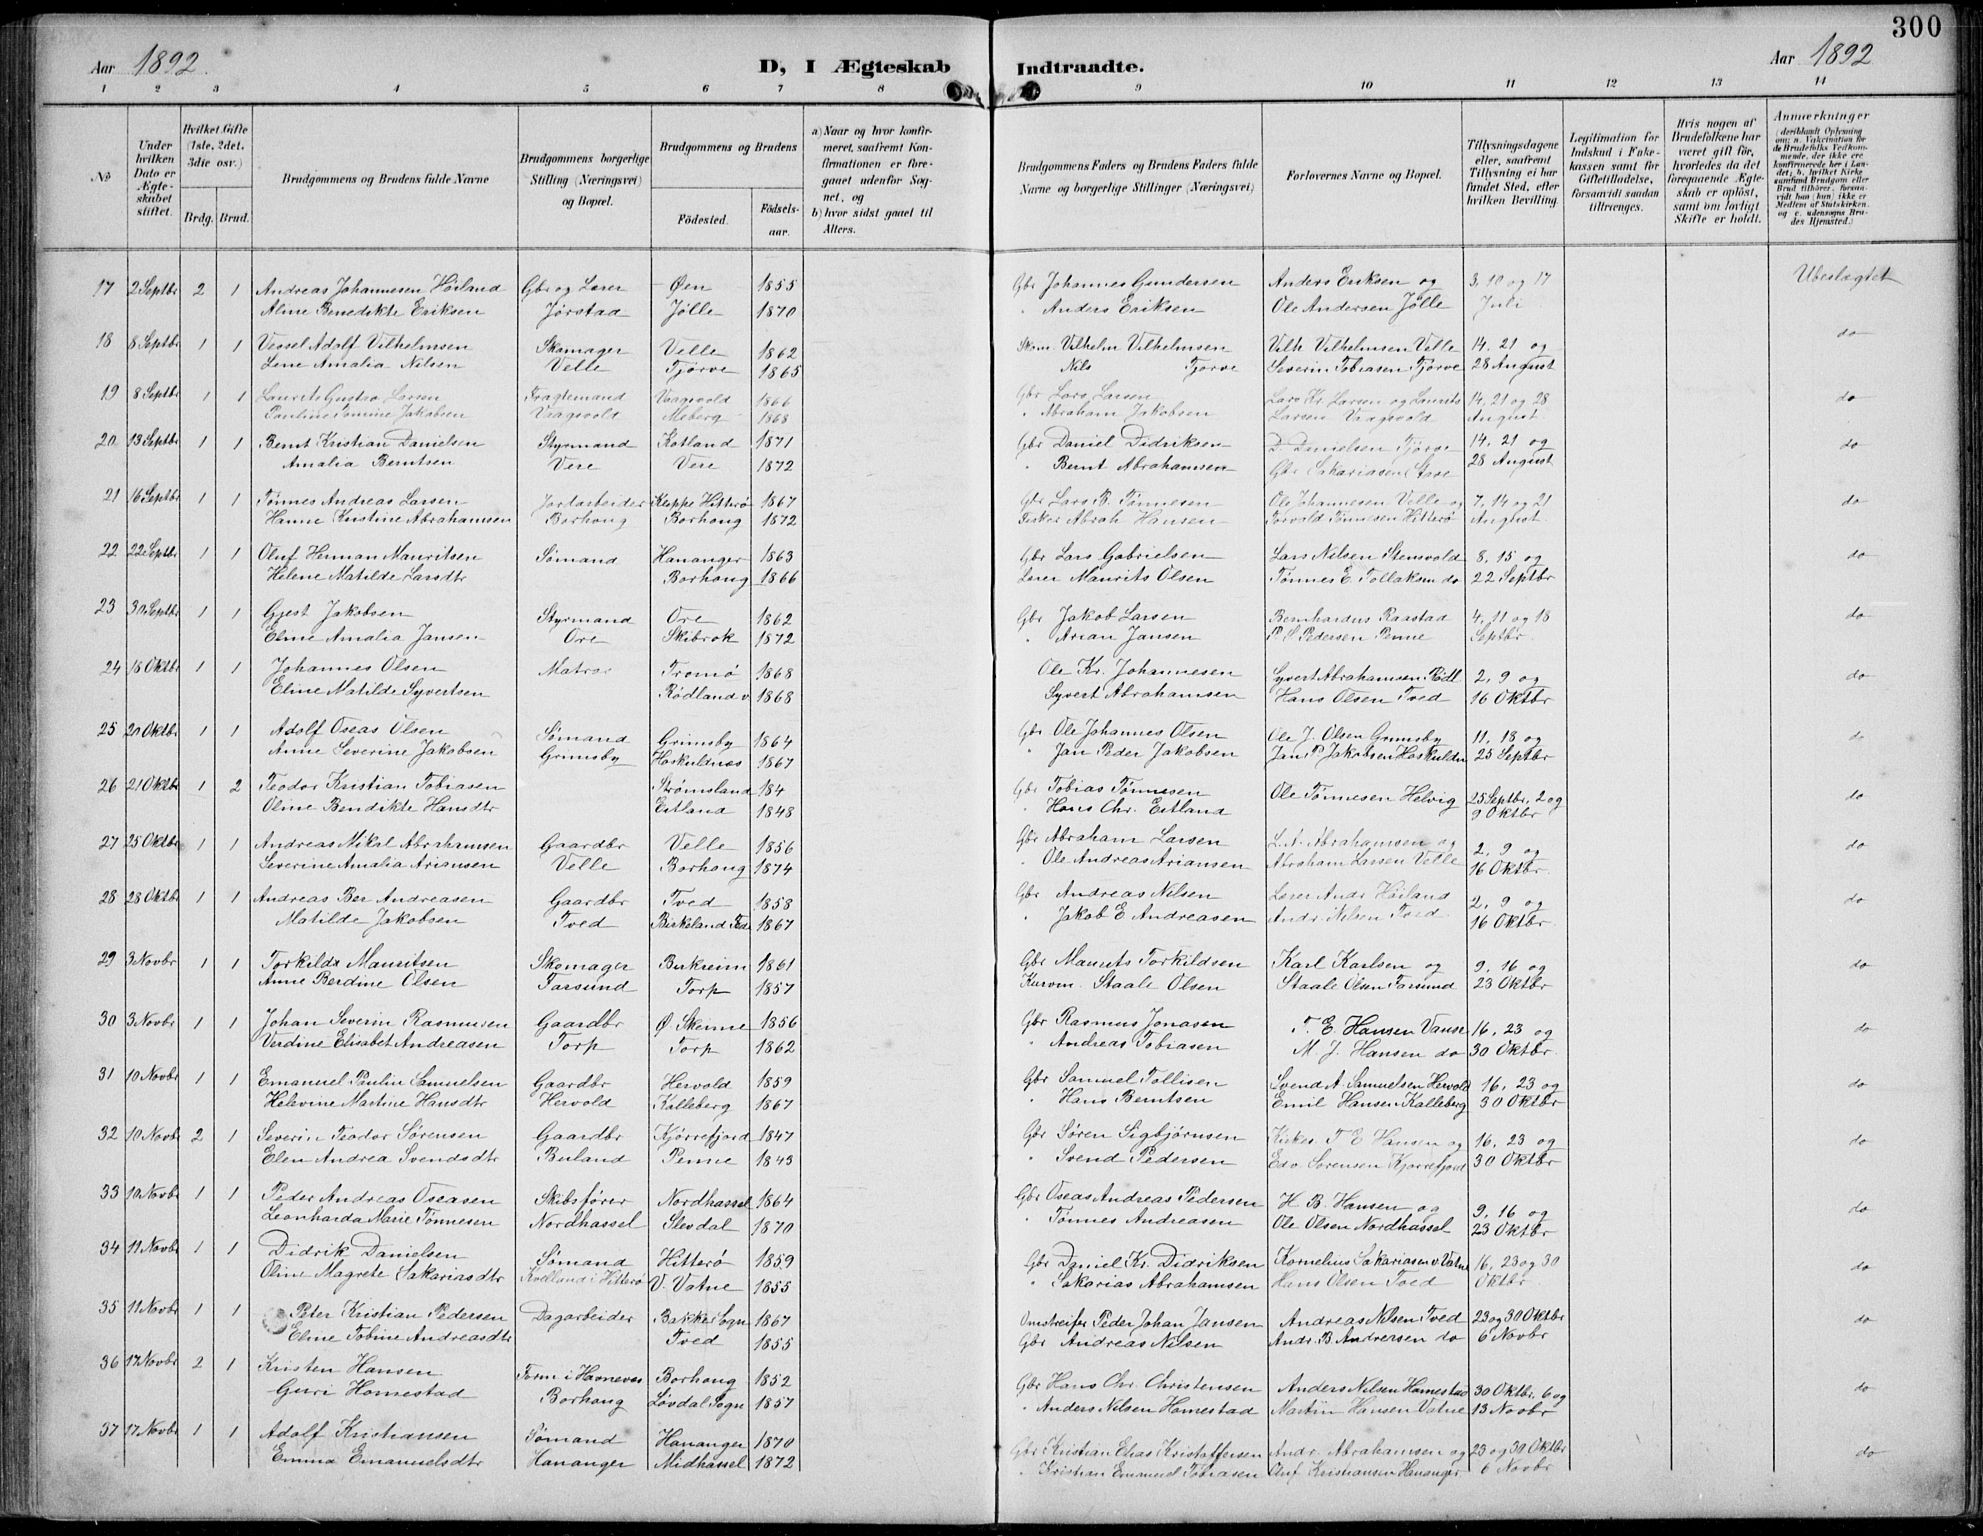 300
Aar 1892.
D, I Ægteskab Indtraadte.
Aar 1892
1 2 3 4 5 6 7 8 9 10 11 12 13 14
No
Under hvilken Dato er Ægteskabet stiftet.
Hvilket Gifte (1ste, 2det, 3die osv.)
Brdg. Brud.
Brudgommens og Brudens fulde Navne
Brudgommens borgerlige Stilling (Næringsvei) og Bopæl.
Brudgommens og Brudens
Fødested. Fødselsaar.
a) Naar og hvor konfirmeret, saafremt Konfirmationen er foregaaet udenfor Sognet, og
b) hvor sidst gaaet til Alters.
Brudgommens Faders og Brudens Faders fulde Navne og borgerlige Stillinger (Næringsvei)
Forlovernes Navne og Bopæl.
Tillysningsdagene eller, saafremt Tillysning ei har fundet Sted, efter hvilken Bevilling
Legitimation for Indskud i Enkekassen samt for Giftetilladelse, forsaavidt saadan tiltrænges.
Hvis nogen af Brudefolkene har været gift før, hvorledes da det foregaaende Ægteskab er opløst, samt om lovligt Skifte er holdt.
Anmærkninger (deriblandt Oplysning om: a. Vakcination for de Brudefolks Vedkommende, der ikke ere konfirmerede her i Landet; b. hvilket Kirkesamfund Brudgom eller Brud tilhører, forsaavidt han (hun) ikke er Medlem af Statskirken, og c. udensogns Brudes Hjemsted.)
17 2 Septbr 2 1 Andreas Johannesen Høiland Gbr og Lærer Øen 1855 Gbr Johannes Gundersen Anders Eriksen og 3, 10 og 17 Ubeslægtet
Aline Benedikte Eriksen Jørstad Jølle 1870 " Anders Eriksen Ole Andersen Jølle Juli
18 8 Septbr 1 1 Vessel Adolf Vilhelmsen Skomager Velle 1862 Skom. Vilhelm Vilhelmsen Vilh Vilhelmsen Velle 14. 21 og do
Lene Amalia Nilsen Velle Tjørve 1865 Nils Tjørve Severin Tobiasen Tjørve 28 August
19 8 Septbr 1 1 Laurits Gustav Larsen Fragtemand Vaagsvold 1866 Gbr Lars Larsen Lars Kr. Larsen og Laurits 14, 21 og 28 do
Pauline Tomine Jakobsen Vaagsvold Moberg 1868 " Abraham Jakobsen Larsen Vaagsvold August
20 13 Septbr 1 1 Bernt Kristian Danielsen Styrmand Kotland 1871 Gbr Daniel Didriksen D. Danielsen Tjørve 14. 21 og do
Amalia Berntsen Vere 1872 Vere " Bernt Abrahamsen Gbr Sakariasen Stave 28 August
21 16 Septbr 1 1 Tønnes Andreas Larsen Jordarbeider Kleppe Hitterø 1867 Gbr Lars B. Tønnesen Ole Johannesen Velle og 7, 14 og 21 do
Hanne Kristine Abrahamsen Borhoug Borhoug 1872 Fisker Abrah Hansen Torvald Tønnesen Hitterø August
22 22 Septbr 1 1 Oluf Herman Mauritsen Sømand Hananger 1863 Gbr Lars Gabrielsen Lars Nilsen Stensvold 8, 15 og do
Helene Matilde Larsdtr Borhoug 1866 Lærer Maurits Olsen Tønnes E. Tollaksen do 22 Septbr
23 30 Septbr 1 1 Gjest Jakobsen Styrmand Ore 1862 Gbr Jakob Larsen Bernhardus Raastad 4, 11 og 18 do
Eline Amalia Jansen Ore Skibrok 1872 " Arian Jansen P. S. Pedersen Penne Septbr
24 18 Oktbr 1 1 Johannes Olsen Matros Tromø 1868 Ole Kr. Johannesen Syvert Abrahamsen Rødl 2, 9 og do
Eline Matilde Syvertsen Rødland v 1868 Syvert Abrahamsen Hans Olsen Tved 16 Oktbr
25 20 Oktbr 1 1 Adolf Oseas Olsen Sømand Grimsby 1864 Gbr Ole Johannes Olsen Ole J. Olsen Grimsby 11, 18 og do
Anne Severine Jakobsen Grimsby Høskuldnes 1867 " Jan Peder Jakobsen Jan P Jakobsen Høskuldn 25 Septbr
26 21 Oktbr 1 2 Teodor Kristian Tobiasen Strømsland 184 Gbr Tobias Tønnesen Ole Tønnesen Helvig 25 Septbr, 2 og do
Oline Bendikte Hansdtr Estland 1848 " Hans Chr. Estland 9 Oktbr
27 25 Oktbr 1 1 Andreas Mikal Abrahamsen Gaardbr Velle 1856 Gbr Abraham Larsen L. A. Abrahamsen og 2, 9 og do
Severine Amalia Ariansen Velle Borhoug 1874 " Ole Andreas Ariansen Abraham Larsen Velle 16 Oktbr
28 28 Oktbr 1 1 Andreas Ber Andreasen Gaardbr Tved 1858 Gbr Andreas Nilsen Lærer Andr Høiland 2, 9 og do
Matilde Jakobsen Tved Birkeland Feda 1867 " Jakob E Andreasen Andr. Nilsen Tved 16 Oktbr
29 3 Novbr 1 1 Torkilda Mauritsen Skomager Birkreim 1861 Gbr Maurits Torkildsen Karl Karlsen og 9, 16 og do
Anne Berdine Olsen Farsund Torp 1857 Kurvm. Staale Olsen Staale Olsen Farsund 23 Oktbr
30 3 Novbr 1 1 Johan Severin Rasmussen Gaardbr Ø. Skeime 1856 Gbr Rasmus Jonasen T. E. Hansen Vanse 16, 23 og do
Verdine Elisabet Andreasen Torp Torp 1862 " Andreas Tobiasen M. J. Hansen do 30 Oktbr
31 10 Novbr 1 1 Emanuel Paulin Samuelsen Gaardbr Hervold 1859 Gbr Samuel Tollisen Svend A. Samuelsen Hervold 16, 23 og do
Helevine Martine Hansdtr Hervold Kalleberg 1867 " Hans Berntsen Emil Hansen Kalleberg 30 Oktbr
32 10 Novbr 2 1 Severin Teodor Sørensen Gaardbr Kjørrefjord 1847 Gbr Søren Sigbjørnsen Kirkes. T E Hansen og 16, 23 og do
Elen Andrea Svendsdtr Buland Penne 1843 " Svend Pedersen Edv Sørensen Kjørrefjord 30 Oktbr
33 10 Novbr 1 1 Peder Andreas Oseasen Skibsfører Nordhassel 1864 Gbr Oseas Andreas Pedersen H. B. Hansen og 9, 16 og do
Leonharda Marie Tønnesen Nordhassel Slevdal 1870 " Tønnes Andreasen Ole Olsen Nordhassel 23 Oktbr
34 11 Novbr 1 1 Didrik Danielsen Sømand Hitterø 1859 Gbr Daniel Kr. Didriksen Kornelius Sakariasen v. Vatne 16, 23 og 30 do
Oline Magrete Sakariasdtr Kvelland i Hitterø V. Vatne 1855 " Sakarias Abrahamsen Hans Olsen Tved Oktbr
35 11 Novbr 1 1 Peter Kristian Pedersen Dagarbeider Bakke Sogn 1867 Omstreifer Peder Johan Jansen Andreas Nilsen Tved 23 og 30 Oktbr do
Eline Tobine Andreasdtr Tved 1855 Gbr Andreas Nilsen Andr. B Andresen do 6 Novbr
36 17 Novbr 2 1 Kristen Hansen Form i Havnevæs Borhoug 1852 Gbr Hans Chr. Christensen Anders Nilsen Homestad 30 Oktbr, 6 og do
Guri Homestad Borhoug Løvdal Sogn 1857 " Anders Nilsen Homestad Martin Hansen Vatne 13 Novbr
37 17 Novbr 1 1 Adolf Kristiansen Sømand Hananger 1870 Gbr Kristian Elias Kristoffersen Andr. Abrahamsen og 23 og 30 Oktbr do
Emma Emanuelsdtr Hananger Midhassel 1872 " Kristian Emanuel Tobiasen Oluf Kristiansen Hananger 6 Novbr